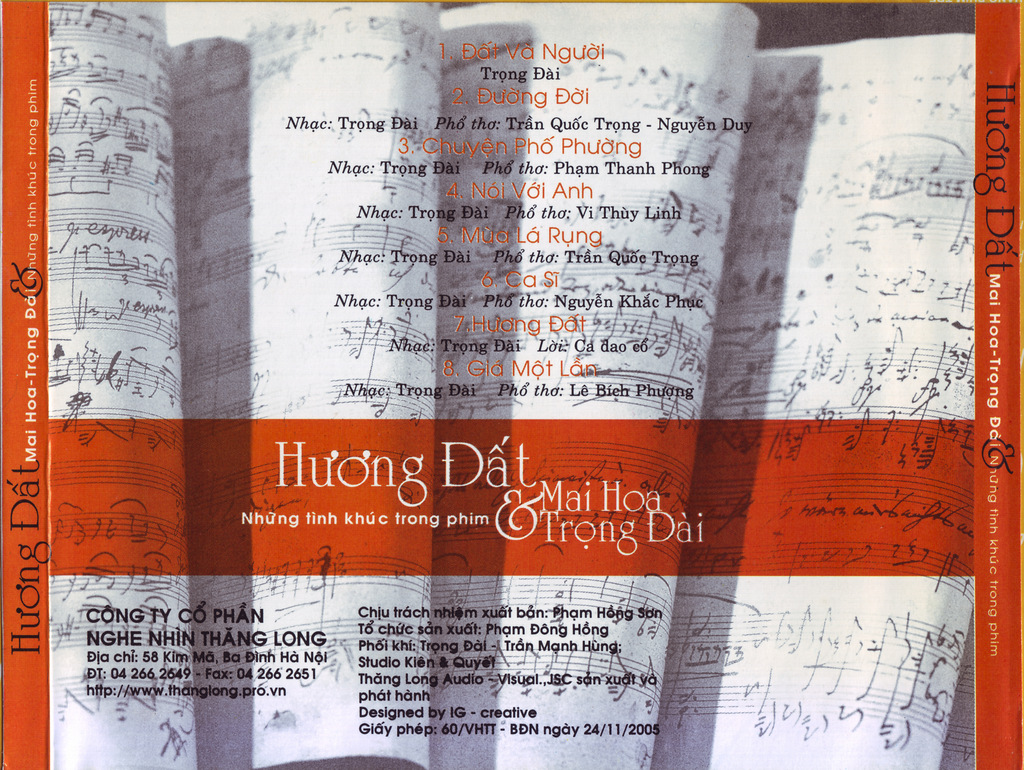 1. Đất Và Người
Trọng Đài
2. Đường Đời
Nhạc: Trọng Đài Phổ thơ: Trần Quốc Trọng - Nguyễn Duy
3. Chuyện Phố Phường
Nhạc: Trọng Đài Phổ thơ: Phạm Thanh Phong
4. Nói Với Anh
Nhạc: Trọng Đài Phổ thơ: Vi Thùy Linh
5. Mùa Lá Rụng
Nhạc: Trọng Đài Phổ thơ: Trần Quốc Trọng
6. Ca Sĩ
Nhạc: Trọng Đài Phổ thơ: Nguyễn Khắc Phục
7.Hương Đất
Nhạc: Trọng Đài Lời: Ca dao cổ
8. Giá Một Lần
Nhạc: Trọng Đài Phổ thơ: Lê Bích Phượng
Hương Đất
Những tình khúc trong phim & Mai Hoa
Trọng Đài
CÔNG TY CỔ PHẦN
NGHE NHÌN THĂNG LONG
Địa chỉ: 58 Kim Mã, Ba Đình Hà Nội
ĐT: 04 266 2649 - Fax: 04 266 2651
http://www.thanglong.pro.vn
Chịu trách nhiệm xuất bản: Phạm Hồng Sơn
Tổ chức sản xuất: Phạm Đông Hồng
Phối khí: Trọng Đài - Trần Mạnh Hùng;
Studio Kiên & Quyết
Thăng Long Audio - Visual.,JSC sản xuất và
phát hành
Designed by IG - creative
Giấy phép: 60/VHTT - BĐN ngày 24/11/2005
Hương Đất & Mai Hoa-Trọng Đài Những tình khúc trong phim
Hương Đất & Mai Hoa-Trọng Đài Những tình khúc trong phim